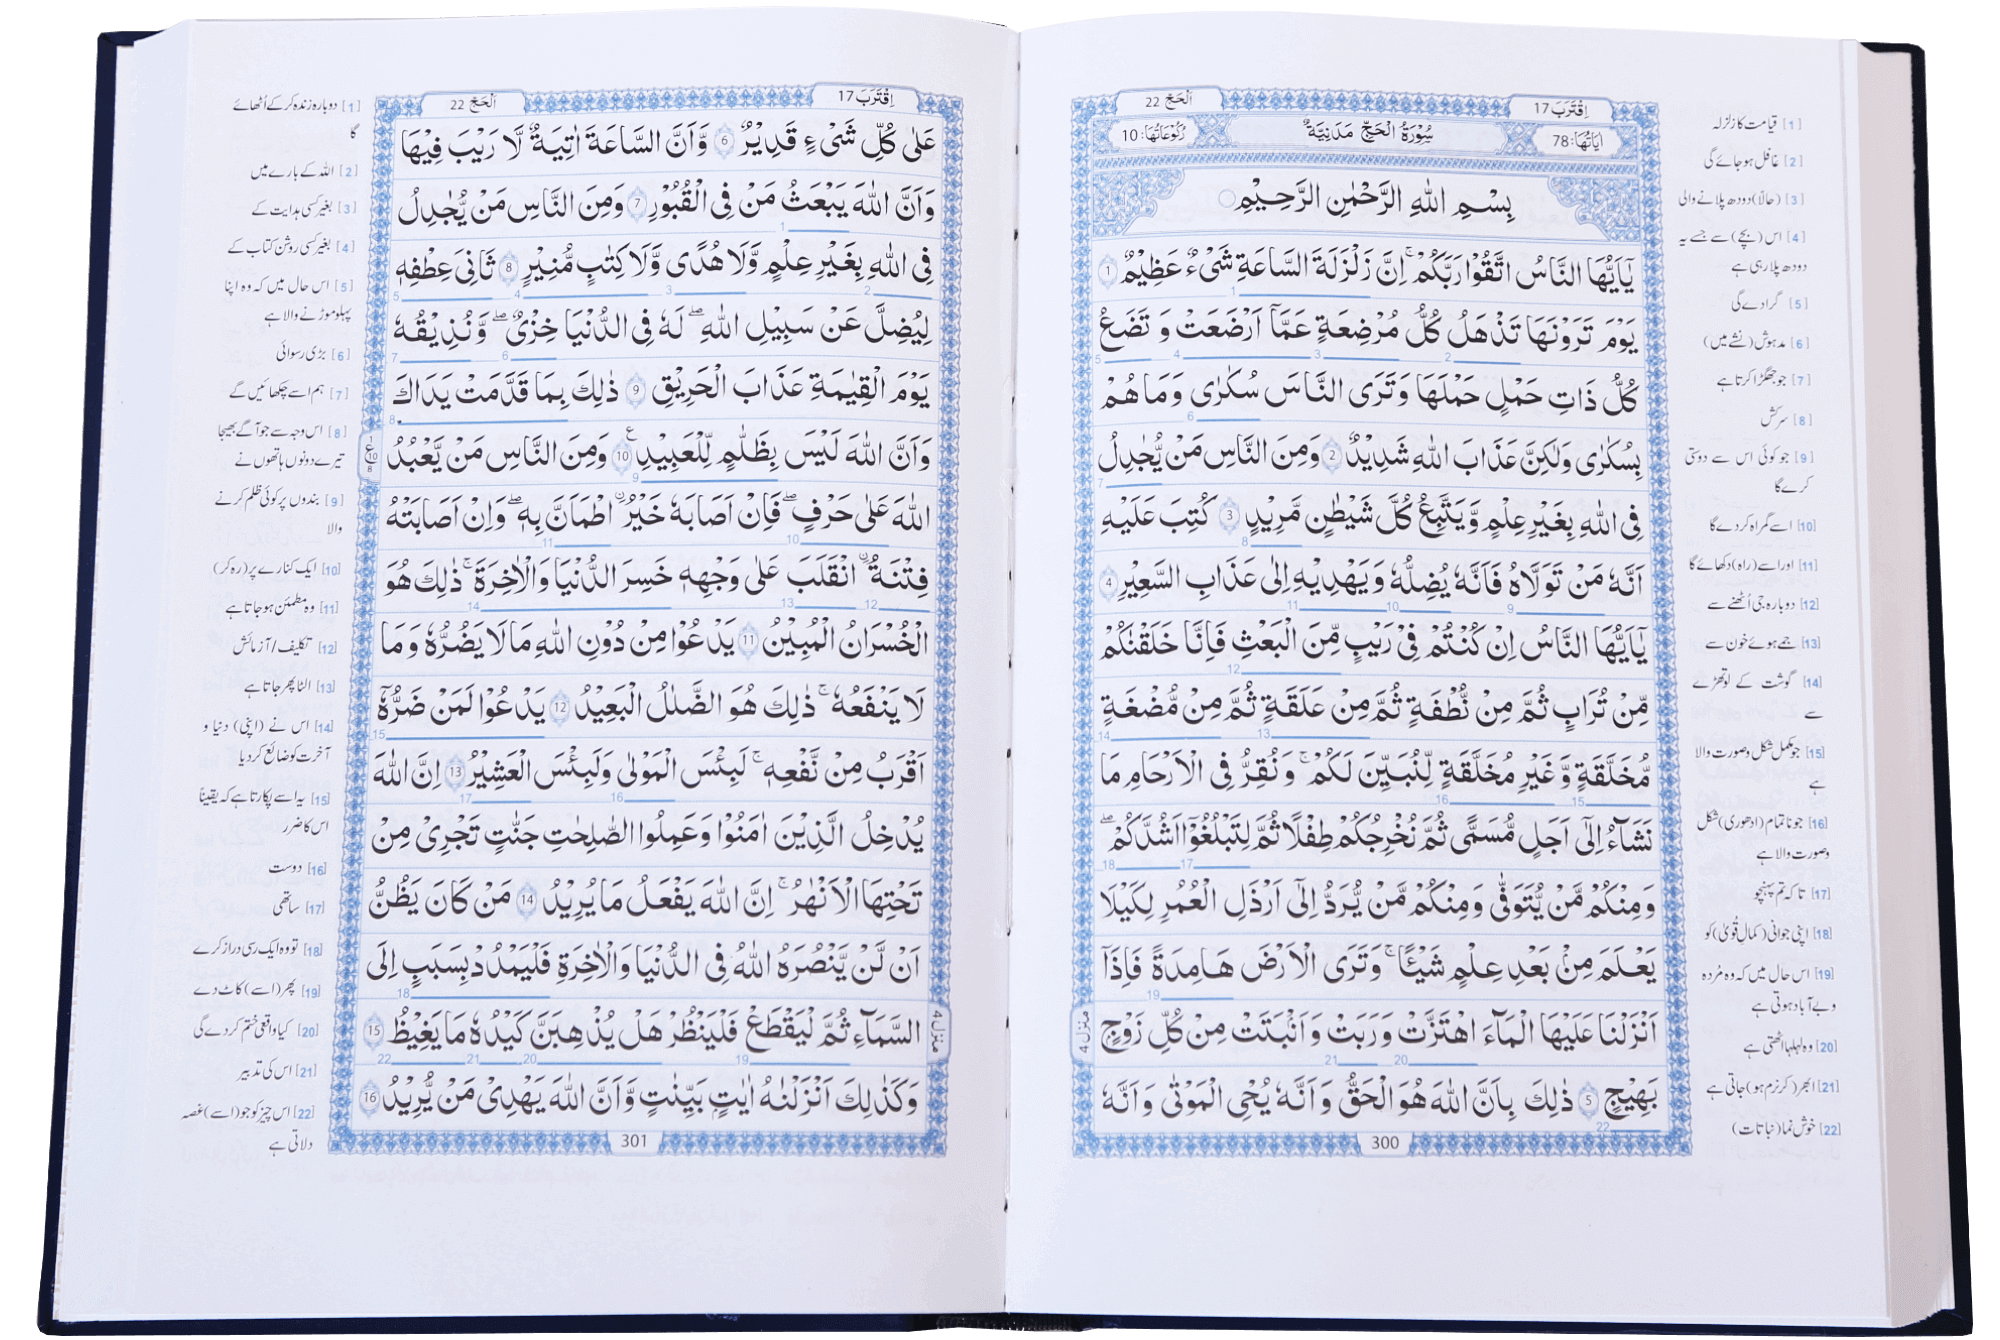 اَلْحَجّ 22
اِقْتَرَبَ 17
اٰيَاتُهَا: 78
سُوْرَةُ الْحَجِّ مَدَنِيَّةٌ
رُكُوْعَاتُهَا: 10
بِسْمِ اللّٰهِ الرَّحْمٰنِ الرَّحِيْمِ
يٰۤاَيُّهَا النَّاسُ اتَّقُوْا رَبَّكُمْ ۚ اِنَّ زَلْزَلَةَ السَّاعَةِ شَىْءٌ عَظِيْمٌ 1
يَوْمَ تَرَوْنَهَا تَذْهَلُ كُلُّ مُرْضِعَةٍ عَمَّاۤ اَرْضَعَتْ وَ تَضَعُ
كُلُّ ذَاتِ حَمْلٍ حَمْلَهَا وَتَرَى النَّاسَ سُكٰرٰى وَمَا هُمْ
بِسُكٰرٰى وَلٰكِنَّ عَذَابَ اللّٰهِ شَدِيْدٌ 2 وَمِنَ النَّاسِ مَنْ يُّجَادِلُ
فِى اللّٰهِ بِغَيْرِ عِلْمٍ وَّيَتَّبِعُ كُلَّ شَيْطٰنٍ مَّرِيْدٍ 3 كُتِبَ عَلَيْهِ
اَنَّهٗ مَنْ تَوَلَّاهُ فَاَنَّهٗ يُضِلُّهٗ وَيَهْدِيْهِ اِلٰى عَذَابِ السَّعِيْرِ 4
يٰۤاَيُّهَا النَّاسُ اِنْ كُنْتُمْ فِىْ رَيْبٍ مِّنَ الْبَعْثِ فَاِنَّا خَلَقْنٰكُمْ
مِّنْ تُرَابٍ ثُمَّ مِنْ نُّطْفَةٍ ثُمَّ مِنْ عَلَقَةٍ ثُمَّ مِنْ مُّضْغَةٍ
مُّخَلَّقَةٍ وَّغَيْرِ مُخَلَّقَةٍ لِّنُبَيِّنَ لَكُمْ ۚ وَنُقِرُّ فِى الْاَرْحَامِ مَا
نَشَآءُ اِلٰٓى اَجَلٍ مُّسَمًّى ثُمَّ نُخْرِجُكُمْ طِفْلًا ثُمَّ لِتَبْلُغُوْۤا اَشُدَّكُمْ ۖ
وَمِنْكُمْ مَّنْ يُّتَوَفّٰى وَمِنْكُمْ مَّنْ يُّرَدُّ اِلٰٓى اَرْذَلِ الْعُمُرِ لِكَيْلَا
يَعْلَمَ مِنْۢ بَعْدِ عِلْمٍ شَيْـًٔا ۚ وَتَرَى الْاَرْضَ هَامِدَةً فَاِذَاۤ
اَنْزَلْنَا عَلَيْهَا الْمَآءَ اهْتَزَّتْ وَرَبَتْ وَاَنْۢبَتَتْ مِنْ كُلِّ زَوْجٍۭ
بَهِيْجٍ 5 ذٰلِكَ بِاَنَّ اللّٰهَ هُوَ الْحَقُّ وَاَنَّهٗ يُحْىِ الْمَوْتٰى وَاَنَّهٗ
منزل 4
300
[1] قیامت کا زلزلہ
[2] غافل ہوجائے گی
[3] (حالاً) دودھ پلانے والی
[4] اس (بچے) سے جسے یہ
دودھ پلارہی ہے
[5] گرادے گی
[6] مدہوش (نشے میں)
[7] جو جھگڑا کرتا ہے
[8] سرکش
[9] جو کوئی اس سے دوستی
کرے گا
[10] اسے گمراہ کردے گا
[11] اور اسے (راہ) دکھائے گا
[12] دوبارہ جی اُٹھنے سے
[13] جمے ہوئے خون سے
[14] گوشت کے لوتھڑے
سے
[15] جو مکمل شکل وصورت والا
ہے
[16] جو ناتمام (ادھوری) شکل
وصورت والا ہے
[17] تاکہ تم پہنچو
[18] اپنی جوانی (کمالِ قُویٰ) کو
[19] اس حال میں کہ وہ مُردہ
وبے آباد ہوتی ہے
[20] وہ لہلہا اٹھتی ہے
[21] ابھر (کر نرم ہو) جاتی ہے
[22] خوش نما (نباتات)
اَلْحَجّ 22
اِقْتَرَبَ 17
عَلٰى كُلِّ شَىْءٍ قَدِيْرٌ 6 وَّاَنَّ السَّاعَةَ اٰتِيَةٌ لَّا رَيْبَ فِيْهَا
وَاَنَّ اللّٰهَ يَبْعَثُ مَنْ فِى الْقُبُوْرِ 7 وَمِنَ النَّاسِ مَنْ يُّجَادِلُ
فِى اللّٰهِ بِغَيْرِ عِلْمٍ وَّلَا هُدًى وَّلَا كِتٰبٍ مُّنِيْرٍ 8 ثَانِىَ عِطْفِهٖ
لِيُضِلَّ عَنْ سَبِيْلِ اللّٰهِ ۖ لَهٗ فِى الدُّنْيَا خِزْىٌ ۖ وَّنُذِيْقُهٗ
يَوْمَ الْقِيٰمَةِ عَذَابَ الْحَرِيْقِ 9 ذٰلِكَ بِمَا قَدَّمَتْ يَدَاكَ
وَاَنَّ اللّٰهَ لَيْسَ بِظَلَّامٍ لِّلْعَبِيْدِ 10 وَمِنَ النَّاسِ مَنْ يَّعْبُدُ
اللّٰهَ عَلٰى حَرْفٍ ۖ فَاِنْ اَصَابَهٗ خَيْرُ ۨ اطْمَاَنَّ بِهٖ ۖ وَاِنْ اَصَابَتْهُ
فِتْنَةُ ۨ انْقَلَبَ عَلٰى وَجْهِهٖ خَسِرَ الدُّنْيَا وَالْاٰخِرَةَ ۚ ذٰلِكَ هُوَ
الْخُسْرَانُ الْمُبِيْنُ 11 يَدْعُوْا مِنْ دُوْنِ اللّٰهِ مَا لَا يَضُرُّهٗ وَمَا
لَا يَنْفَعُهٗ ۚ ذٰلِكَ هُوَ الضَّلٰلُ الْبَعِيْدُ 12 يَدْعُوْا لَمَنْ ضَرُّهٗۤ
اَقْرَبُ مِنْ نَّفْعِهٖ ۚ لَبِئْسَ الْمَوْلٰى وَلَبِئْسَ الْعَشِيْرُ 13 اِنَّ اللّٰهَ
يُدْخِلُ الَّذِيْنَ اٰمَنُوْا وَعَمِلُوا الصّٰلِحٰتِ جَنّٰتٍ تَجْرِىْ مِنْ
تَحْتِهَا الْاَنْهٰرُ ۚ اِنَّ اللّٰهَ يَفْعَلُ مَا يُرِيْدُ 14 مَنْ كَانَ يَظُنُّ
اَنْ لَّنْ يَّنْصُرَهُ اللّٰهُ فِى الدُّنْيَا وَالْاٰخِرَةِ فَلْيَمْدُدْ بِسَبَبٍ اِلَى
السَّمَآءِ ثُمَّ لْيَقْطَعْ فَلْيَنْظُرْ هَلْ يُذْهِبَنَّ كَيْدُهٗ مَا يَغِيْظُ 15
وَكَذٰلِكَ اَنْزَلْنٰهُ اٰيٰتٍۭ بَيِّنٰتٍ وَّاَنَّ اللّٰهَ يَهْدِىْ مَنْ يُّرِيْدُ 16
منزل 4
301
[1] دوبارہ زندہ کرکے اُٹھائے
گا
[2] اللہ کے بارے میں
[3] بغیر کسی ہدایت کے
[4] بغیر کسی روشن کتاب کے
[5] اس حال میں کہ وہ اپنا
پہلو موڑنے والا ہے
[6] بڑی رسوائی
[7] ہم اسے چکھائیں گے
[8] اس وجہ سے جو آگے بھیجا
تیرے دونوں ہاتھوں نے
[9] بندوں پر کوئی ظلم کرنے
والا
[10] ایک کنارے پر (رہ کر)
[11] وہ مطمئن ہوجاتا ہے
[12] تکلیف / آزمائش
[13] الٹا پھر جاتا ہے
[14] اس نے (اپنی) دنیا و
آخرت کو ضائع کردیا
[15] یہ اسے پکارتا ہے کہ یقیناً
اس کا ضرر
[16] دوست
[17] ساتھی
[18] تو وہ ایک رسی دراز کرے
[19] پھر (اسے) کاٹ دے
[20] کیا واقعی ختم کردے گی
[21] اس کی تدبیر
[22] اس چیز کو جو (اسے) غصہ
دلاتی ہے